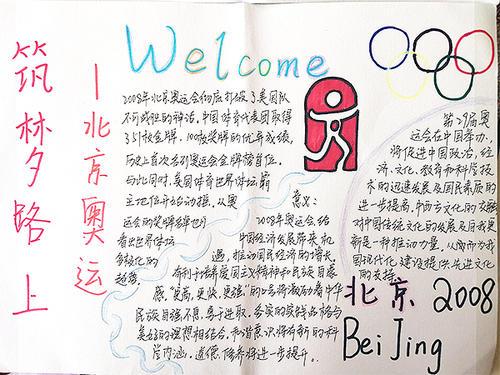 筑梦路上
—北京奥运
Welcome
2008年北京奥运会彻底打破了美国队
不可战胜的神话,中国体育代表团取得
了51枚金牌,100枚奖牌的优异成绩,
历史上首次名列奥运会金牌榜首位。
与此同时,美国体育世界体坛霸
主地位开始动摇,从奥
运会的奖牌榜也可
看出世界体坛
多极化的
趋势。
意义:
2008年奥运会给
中国经济发展带来机
遇,推动国民经济的增长。
有利于培养爱国主义精神和民族自豪
感。"更高,更快,更强"的口号将激励着中华
民族自强不息,勇于进取,务实的实践品格与
美好的理想相结合,和谐意识将有新的科
学内涵,道德,修养将进一步提升。
第29届奥
运会在中国举办,
将促进中国政治,经
济,文化,教育和科学技
术的迅速发展及国民素质的
进一步提高,中西方文化的交融
对中国传统文化的发展及自我更
新是一种推动力量,从而为我
国现代化建设提供先进文化
的支撑。
北京 2008
BeiJing